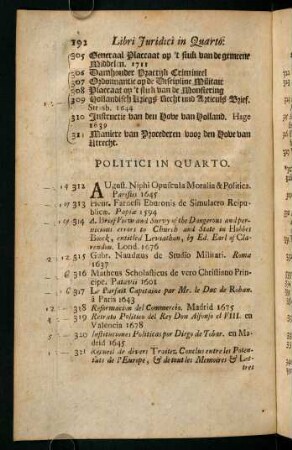 192 Libri Juridici in Quarto.
305 Generaal Placcaat op 't stuk van de gemeene
Middelen. 1711
306 Damhouder Practijk Crimineel
307 Ordonnantie op de Discipline Militair
308 Placcaat op 't stuk van de Monstering
309 Hollandisch Kriegs Recht und Articuls Brief.
1644
310 Instructie van den Hove van Holland. Hage
1639
311 Maniere van Procederen voor den Hove van
Utrecht.
POLITICI IN QUARTO.
312 August. Niphi Opuscula Moralia & Politica.
Parisiis 1645
313 Henr. Farnesii Eburonis de Simulacro Reipu-
blicæ. Papiæ 1594
314 A. Brief View and Survey of the Dangerous and per-
nicious errors to Church and State in Hobbes
Boock, entitled Leviathan, by Ed. Earl of Cla-
rendon. Lond. 1676
315 Gabr. Naudæus de Studio Militari. Roma
1637
316 Matheus Scholasticus de vero Christiano Prin-
cipe. Patavii 1601
317 Le Parfait Capitaine par Mr. le Duc de Rohan.
à Paris 1643
318 Reformacion del Commercio. Madrid 1675
319 Retrato Politico del Rey Don Alfonso el VIII. en
Valencia 1678
320 Instituciones Politicas por Diego de Tobar. en Ma-
drid 1645
321 Recueil de divers Traitez Conclus entre les Poten-
tats de l'Europe, & de tout les Memoires & Let-
tres